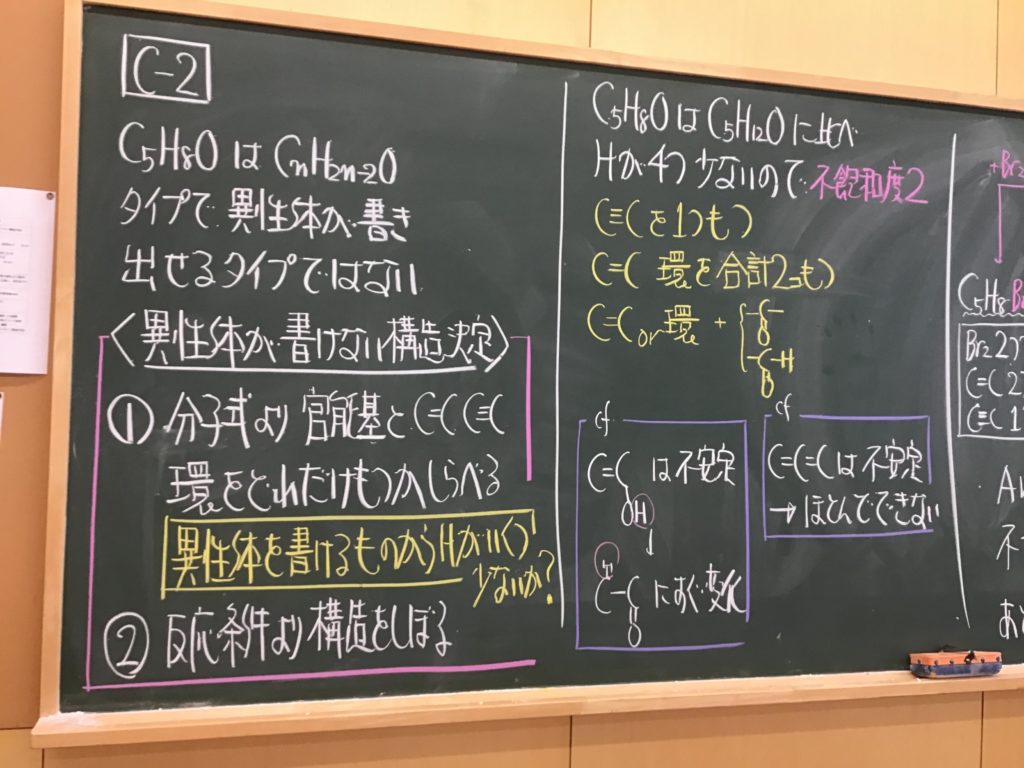 C-2
C5H8O は CnH2n-20
タイプで 異性体が 書き
出せるタイプではない
〈異性体が書けない構造決定〉
① 分子式より 官能基と C=C C≡C
環をどれだけもつかしらべる
異性体を書けるものからHがいくつ
少ないか?
② 反応条件より 構造をしぼる
C5H8O は C5H12O に比べ
Hが4つ 少ないので 不飽和度2
C≡C を1つもつ
C=C 環を合計2つもつ
C=C or 環 + { -C-
O
-C-H
O
cf
C=C は不安定
OH
H
C-C にすぐ変化
O
cf
C=C=C は 不安定
→ ほとんどできない
+Br2
C5H8Br
Br2 2つ
C=C 2
C≡C 1
不